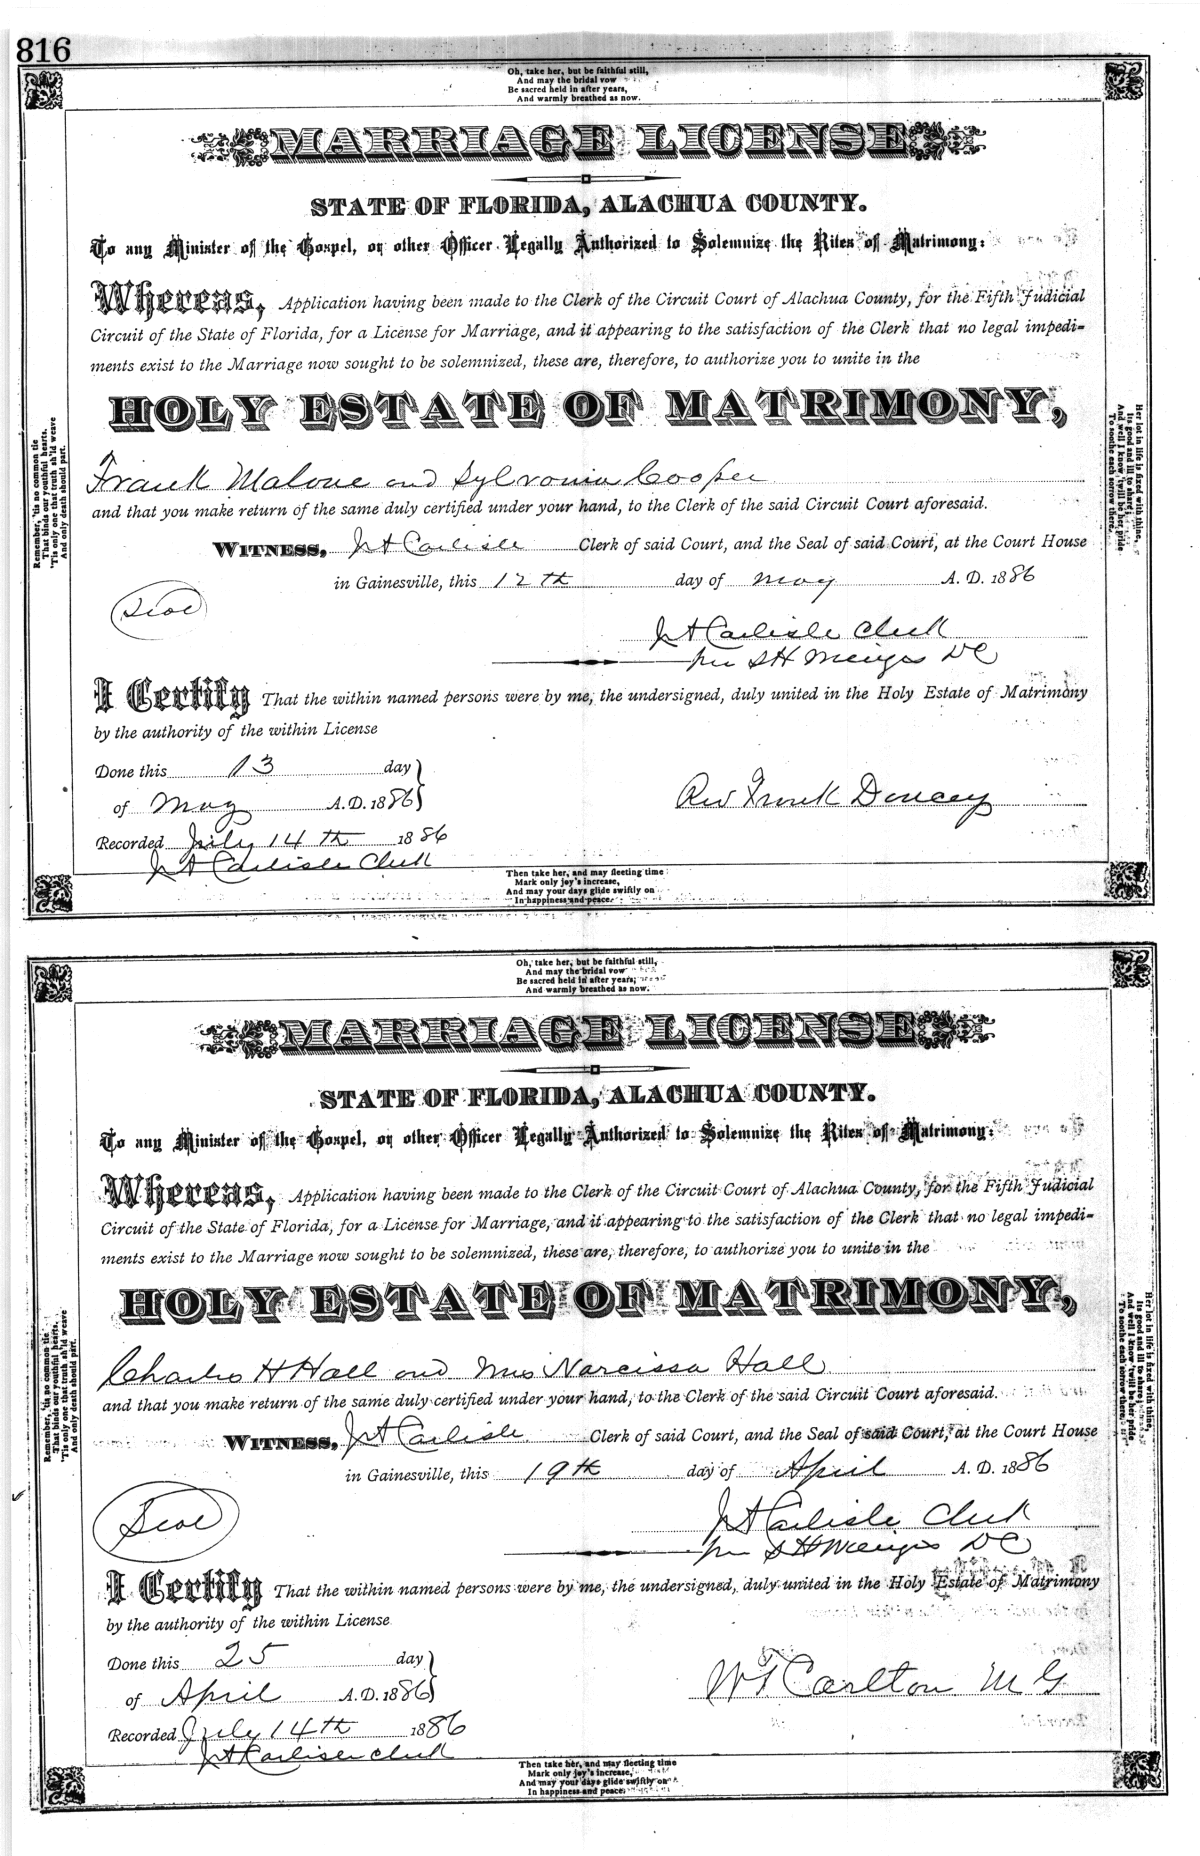 816
Oh, take her, but be faithful still,
And may the bridal vow
Be sacred held in after years,
And warmly breathed as now.
MARRIAGE LICENSE
STATE OF FLORIDA, ALACHUA COUNTY.
To any Minister of the Gospel, or other Officer Legally Authorized to Solemnize the Rites of Matrimony:
Whereas, Application having been made to the Clerk of the Circuit Court of Alachua County, for the Fifth Judicial
Circuit of the State of Florida, for a License for Marriage, and it appearing to the satisfaction of the Clerk that no legal impedi-
ments exist to the Marriage now sought to be solemnized, these are, therefore, to authorize you to unite in the
HOLY ESTATE OF MATRIMONY,
Frank Malone and Sylvonia Cooper
and that you make return of the same duly certified under your hand, to the Clerk of the said Circuit Court aforesaid.
WITNESS, J A Carlisle Clerk of said Court, and the Seal of said Court, at the Court House
in Gainesville, this 12th day of May A. D. 1886
Seal
J A Carlisle Clerk
per S H Meinges DC
I Certify That the within named persons were by me, the undersigned, duly united in the Holy Estate of Matrimony
by the authority of the within License
Done this 13 day
of May A.D. 1886
Rev Frank Doncey
Recorded July 14th 1886
J A Carlisle Clerk
Then take her, and may fleeting time
Mark only joy's increase,
And may your days glide swiftly on
In happiness and peace.
Remember, 'tis no common tie
That binds our youthful hearts,
'Tis only one that truth sh'ld weave
And only death should part.
Her lot in life is fixed with thine,
Its good and ill to share;
And well I know 'twill be her pride
To soothe each sorrow there.
Oh, take her, but be faithful still,
And may the bridal vow
Be sacred held in after years,
And warmly breathed as now.
MARRIAGE LICENSE
STATE OF FLORIDA, ALACHUA COUNTY.
To any Minister of the Gospel, or other Officer Legally Authorized to Solemnize the Rites of Matrimony:
Whereas, Application having been made to the Clerk of the Circuit Court of Alachua County, for the Fifth Judicial
Circuit of the State of Florida, for a License for Marriage, and it appearing to the satisfaction of the Clerk that no legal impedi-
ments exist to the Marriage now sought to be solemnized, these are, therefore, to authorize you to unite in the
HOLY ESTATE OF MATRIMONY,
Charles H Hall and Mrs Narcissa Hall
and that you make return of the same duly certified under your hand, to the Clerk of the said Circuit Court aforesaid.
WITNESS, J A Carlisle Clerk of said Court, and the Seal of said Court, at the Court House
in Gainesville, this 19th day of April A. D. 1886
Seal
J A Carlisle Clerk
per S H Meinges DC
I Certify That the within named persons were by me, the undersigned, duly united in the Holy Estate of Matrimony
by the authority of the within License
Done this 25 day
of April A.D. 1886
W T Carlton M G
Recorded July 14th 1886
J A Carlisle Clerk
Then take her, and may fleeting time
Mark only joy's increase,
And may your days glide swiftly on
In happiness and peace.
Remember, 'tis no common tie
That binds our youthful hearts,
'Tis only one that truth sh'ld weave
And only death should part.
Her lot in life is fixed with thine,
Its good and ill to share;
And well I know 'twill be her pride
To soothe each sorrow there.